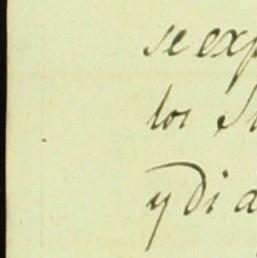 se exp
los S
y di a